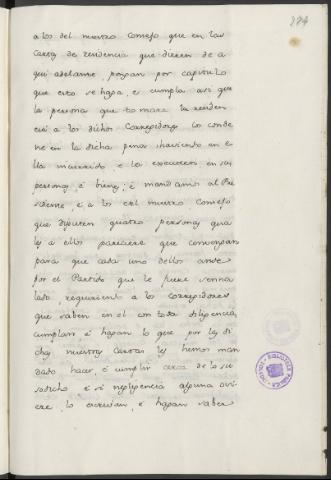 274
a los del nuestro Consejo que en las
Cartas de residencia que dieren de a
qui adelante, pongan por capitulo
que esto se haga, e cumpla asi que
la persona que tomare la residen
cia a los dichos Corregidores los conde
ne en la dicha pena haviendo en e
lla incurrido, e la executen en sus
personas, é bienes, é mandamos al Pre
sidente, é a los del nuestro Consejo
que diputen quatro personas qua
les a ellos pareciere que convengan
para que cada uno dellos ande
por el Partido que le fuere senna
lado requiriendo a los corregidores
que saben en el con toda diligencia,
cumplan é hagan lo que por las di
chas nuestras Cartas les hemos man
dado hacer, é cumplir cerca de lo su
sodicho é si negligencia alguna ovi
ere, lo escrivan, é hagan saber
BIBLIOTECA PUBLICA